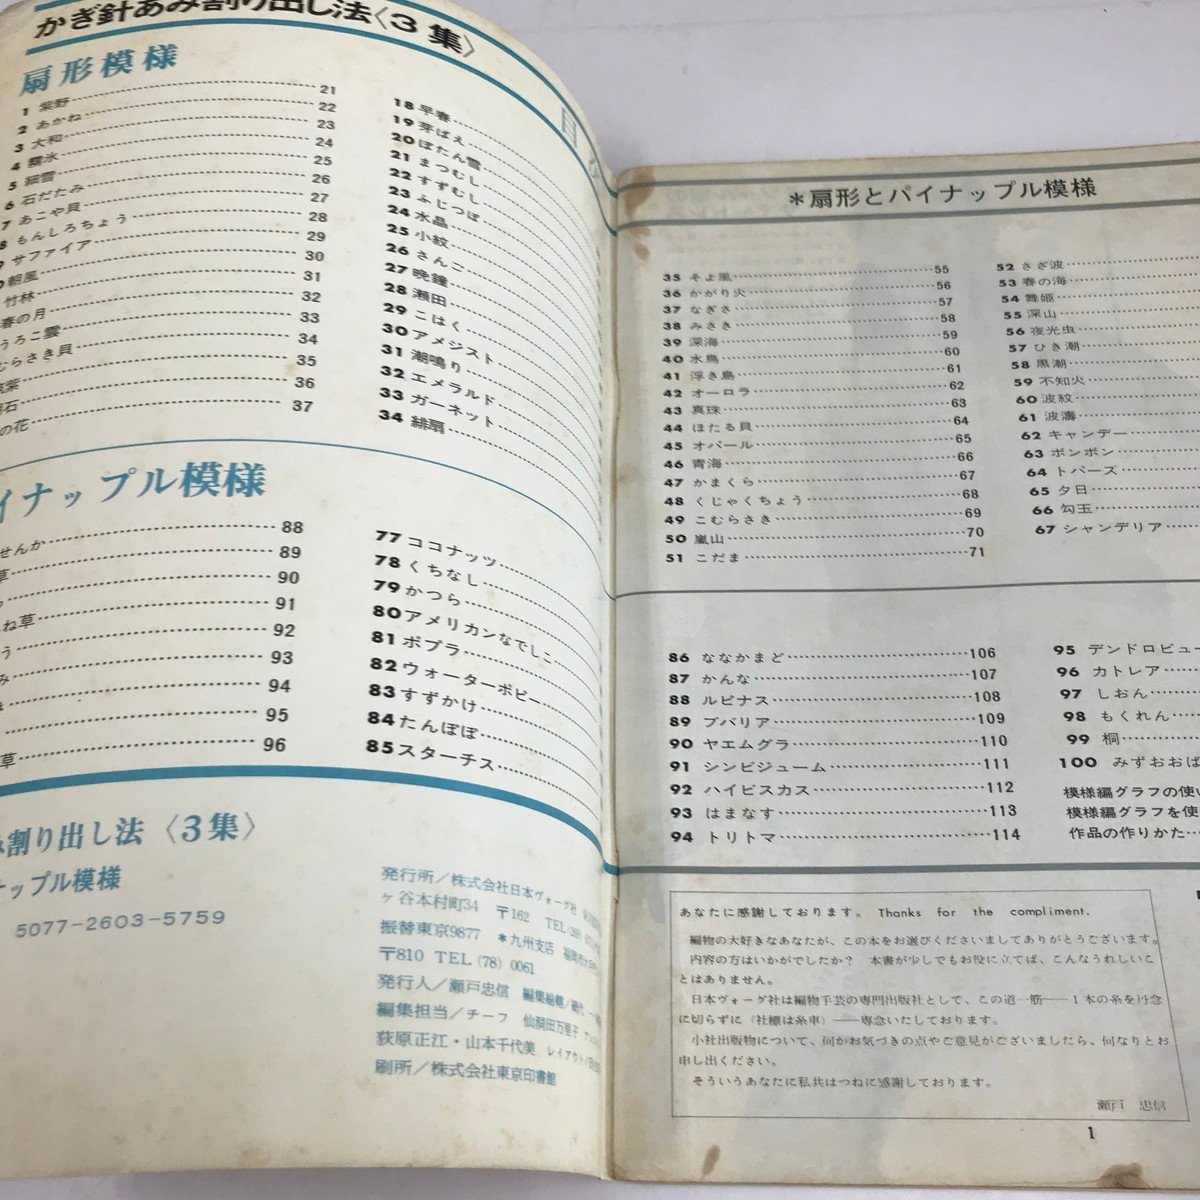 かぎ針あみ割り出し法〈3集〉
扇形模様
目
1 紫野 21
2 あかね 22
3 大和 23
4 24
5 細雪 25
6 石だたみ 26
7 あこや貝 27
8 もんしろちょう 28
サファイア 29
朝風 30
竹林 31
春の月 32
うろこ雲 33
むらさき貝 34
35
石 36
の花 37
18 早春
19 芽ばえ
20 ぼたん雪
21 まつむし
22 すずむし
23 ふじつぼ
24 水晶
25 小紋
26 さんご
27 晩鐘
28 瀬田
29 こはく
30 アメジスト
31 潮鳴り
32 エメラルド
33 ガーネット
34 緋扇
イナップル模様
せんか 88
草 89
90
ね草 91
う 92
み 93
94
95
草 96
77 ココナッツ
78 くちなし
79 かつら
80 アメリカンなでしこ
81 ポプラ
82 ウォーターポピー
83 すずかけ
84 たんぽぽ
85 スターチス
み割り出し法〈3集〉
ナップル模様
5077-2603-5759
発行所／株式会社日本ヴォーグ社
ヶ谷本村町34 〒162 TEL
振替東京9877 *九州支店
〒810 TEL (78) 0061
発行人／瀬戸忠信
編集担当／チーフ
荻原正江・山本千代美 レイアウト
刷所／株式会社東京印書館
*扇形とパイナップル模様
35 そよ風 55
36 かがり火 56
37 なぎさ 57
38 みさき 58
39 深海 59
40 水鳥 60
41 浮き島 61
42 オーロラ 62
43 真珠 63
44 ほたる貝 64
45 オパール 65
46 青海 66
47 かまくら 67
48 くじゃくちょう 68
49 こむらさき 69
50 嵐山 70
51 こだま 71
52 さざ波
53 春の海
54 舞姫
55 深山
56 夜光虫
57 ひき潮
58 黒潮
59 不知火
60 波紋
61 波濤
62 キャンデー
63 ポンポン
64 トパーズ
65 夕日
66 勾玉
67 シャンデリア
86 ななかまど 106
87 かんな 107
88 ルピナス 108
89 ブバリア 109
90 ヤエムグラ 110
91 シンビジューム 111
92 ハイビスカス 112
93 はまなす 113
94 トリトマ 114
95 デンドロビュー
96 カトレア
97 しおん
98 もくれん
99 桐
100 みずおおば
模様編グラフの使い
模様編グラフを使
作品の作りかた
あなたに感謝しております。 Thanks for the compliment.
編物の大好きなあなたが、この本をお選びくださいましてありがとうございます。
内容の方はいかがでしたか？ 本書が少しでもお役に立てば、こんなうれしいこ
とはありません。
日本ヴォーグ社は編物手芸の専門出版社として、この道一筋――1本の糸を丹念
に切らずに（社標は糸車）――専念いたしております。
小社出版物について、何かお気づきの点やご意見がございましたら、何なりとお
申し出ください。
そういうあなたに私共はつねに感謝しております。
瀬戸 忠信
1